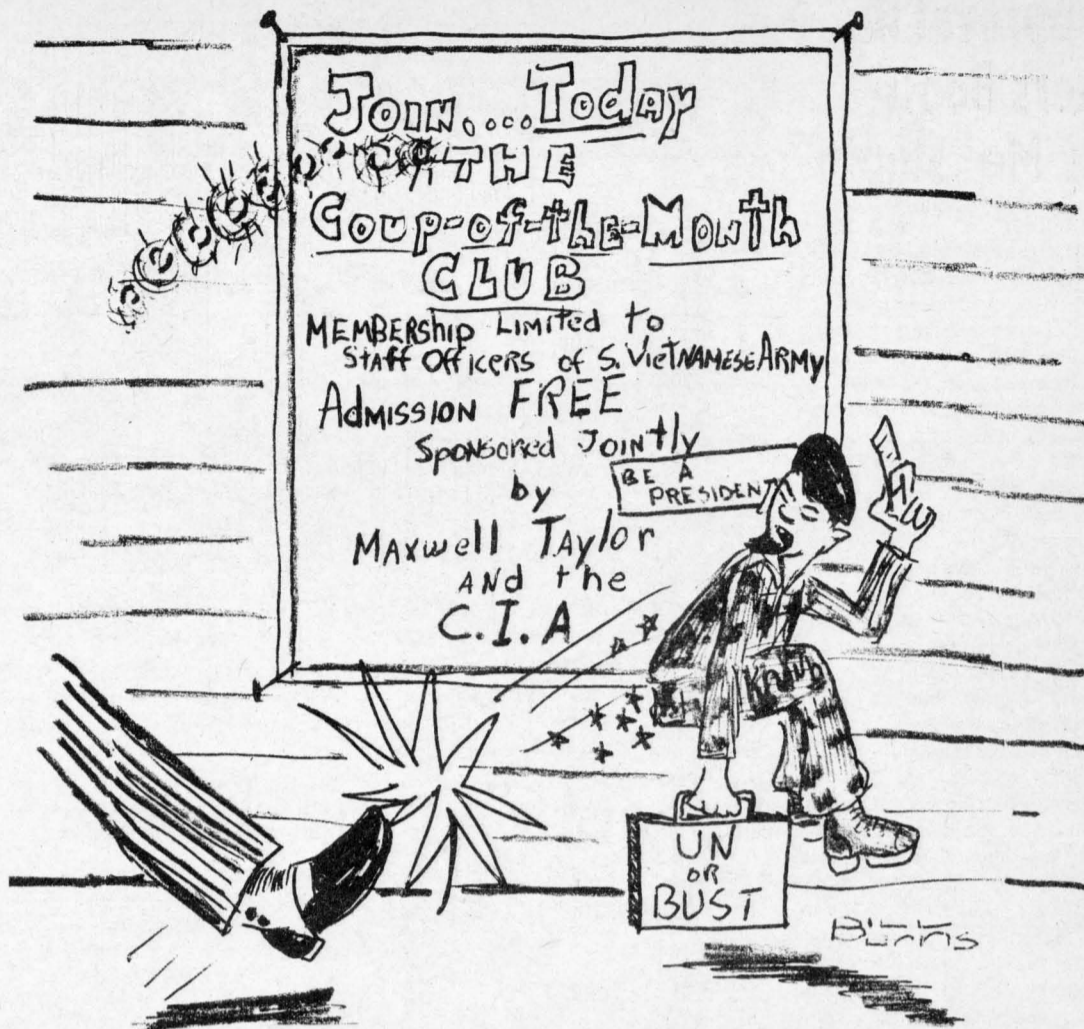 JOIN....Today
THE
Coup-of-the-Month
CLUB
MEMBERShip Limited to
Staff Officers of S. VieTNAMESE ARMY
AdMISSION FREE
SpONSORed JOINtly
by
MAxwell TAylor
ANd the
C.I.A
BE A
PRESIDENT
UN
OR
BUST
Burris